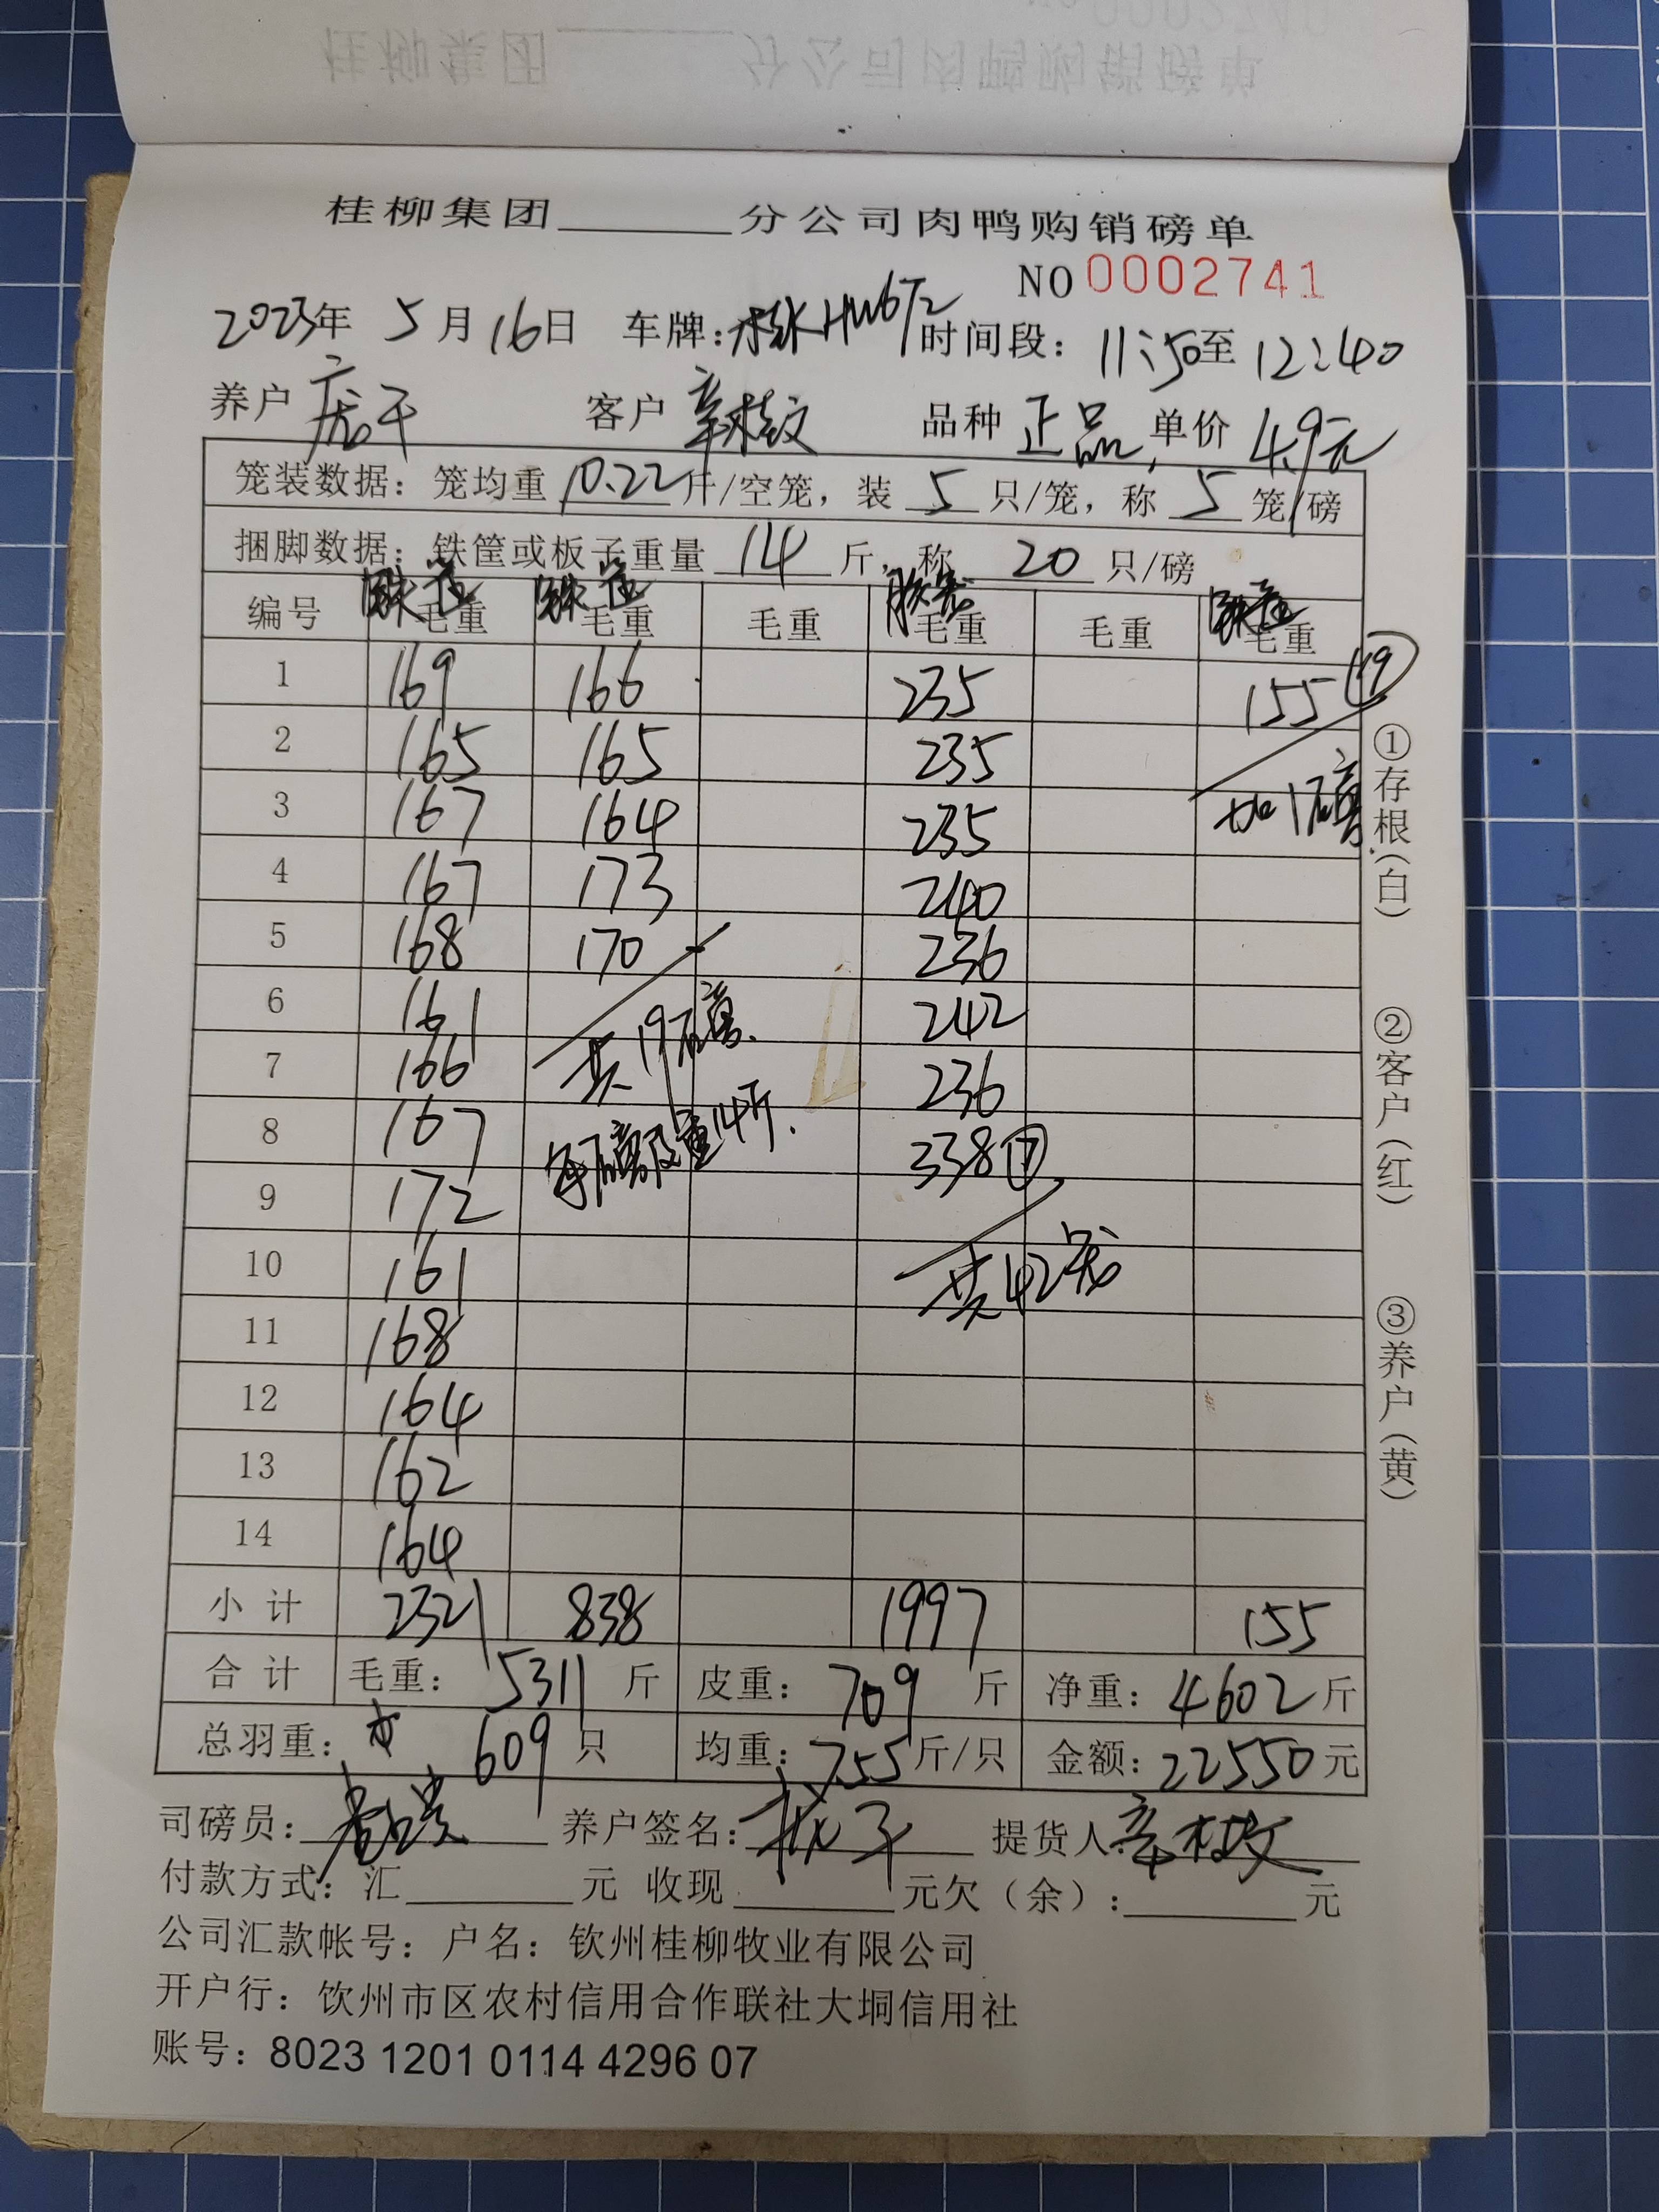 桂柳集团______分公司肉鸭购销磅单
NO 0002741
2023年 5月16日 车牌: 时间段: 11:50至12:40
养户 客户 品种 正品, 单价 4.9元
笼装数据: 笼均重 10.22 斤/空笼, 装 5 只/笼, 称 5 笼/磅
捆脚数据: 铁筐或板子重量 14 斤, 称 20 只/磅
铁筐 铁筐 胶笼 铁筐
编号 毛重 毛重 毛重 毛重 毛重 毛重
1 169 166 235 155 ⑲
2 165 165 235
3 167 164 235 加1磅
4 167 173 240
5 168 170 236
6 161 242
共19磅.
7 166 236
8 167 338 ⑦
每磅皮重14斤.
9 172
10 161 共42笼
11 168
12 164
13 162
14 164
小计 2321 838 1997 155
合计 毛重: 5311 斤 皮重: 709 斤 净重: 4602 斤
总羽重: 609 只 均重: 7.55 斤/只 金额: 22550 元
司磅员: 养户签名: 提货人:
付款方式: 汇______元 收现______元欠(余):______元
公司汇款帐号: 户名: 钦州桂柳牧业有限公司
开户行: 钦州市区农村信用合作联社大垌信用社
账号: 8023 1201 0114 4296 07
①存根(白)
②客户(红)
③养户(黄)